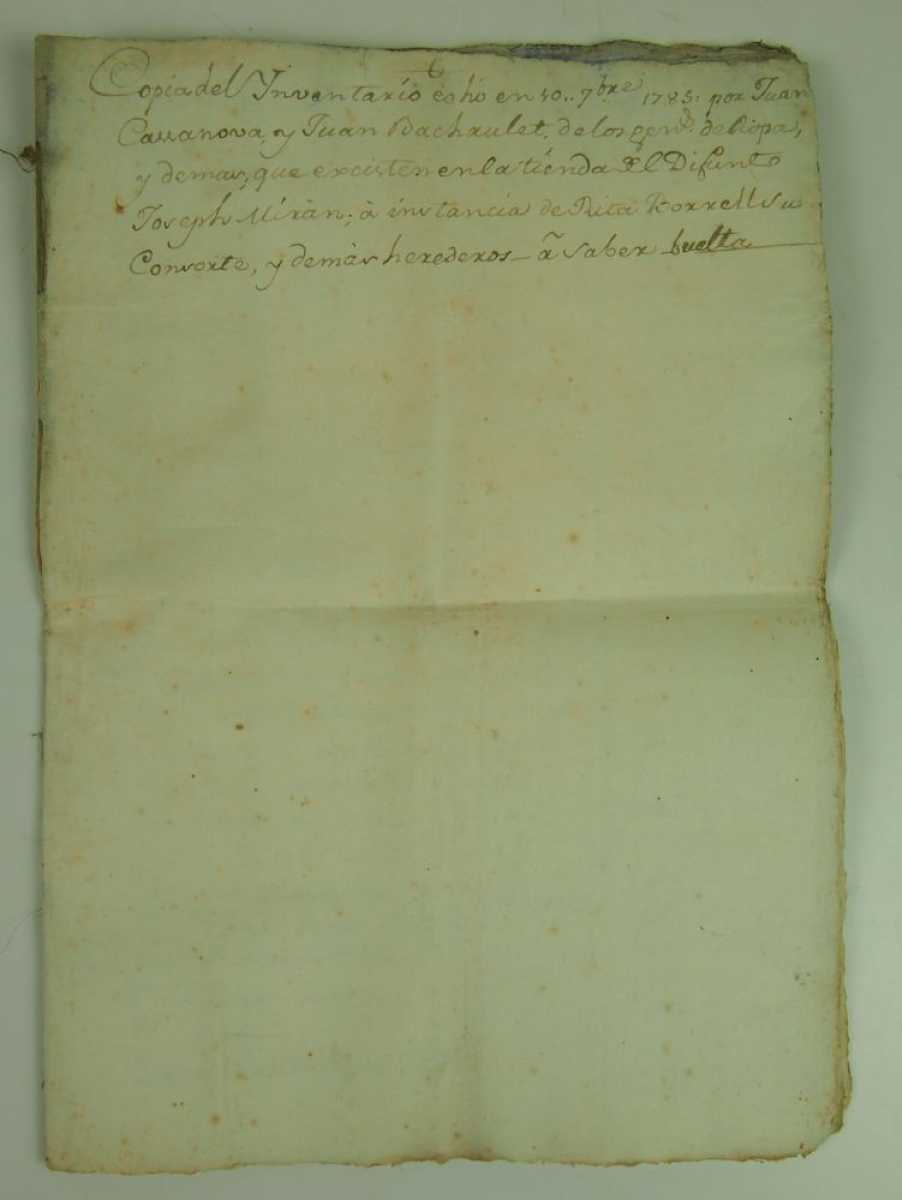 Copia del Ynventario echo en 10.. 7bre 1785. por Juan
Cassanova, y Juan Bachaulet, de los gens. de Ropa,
y demas, que excisten en la tienda del Difunto
Joseph Miràn, à instancia de Rita Borrell su
Consorte, y demàs herederos_ à saber buelta